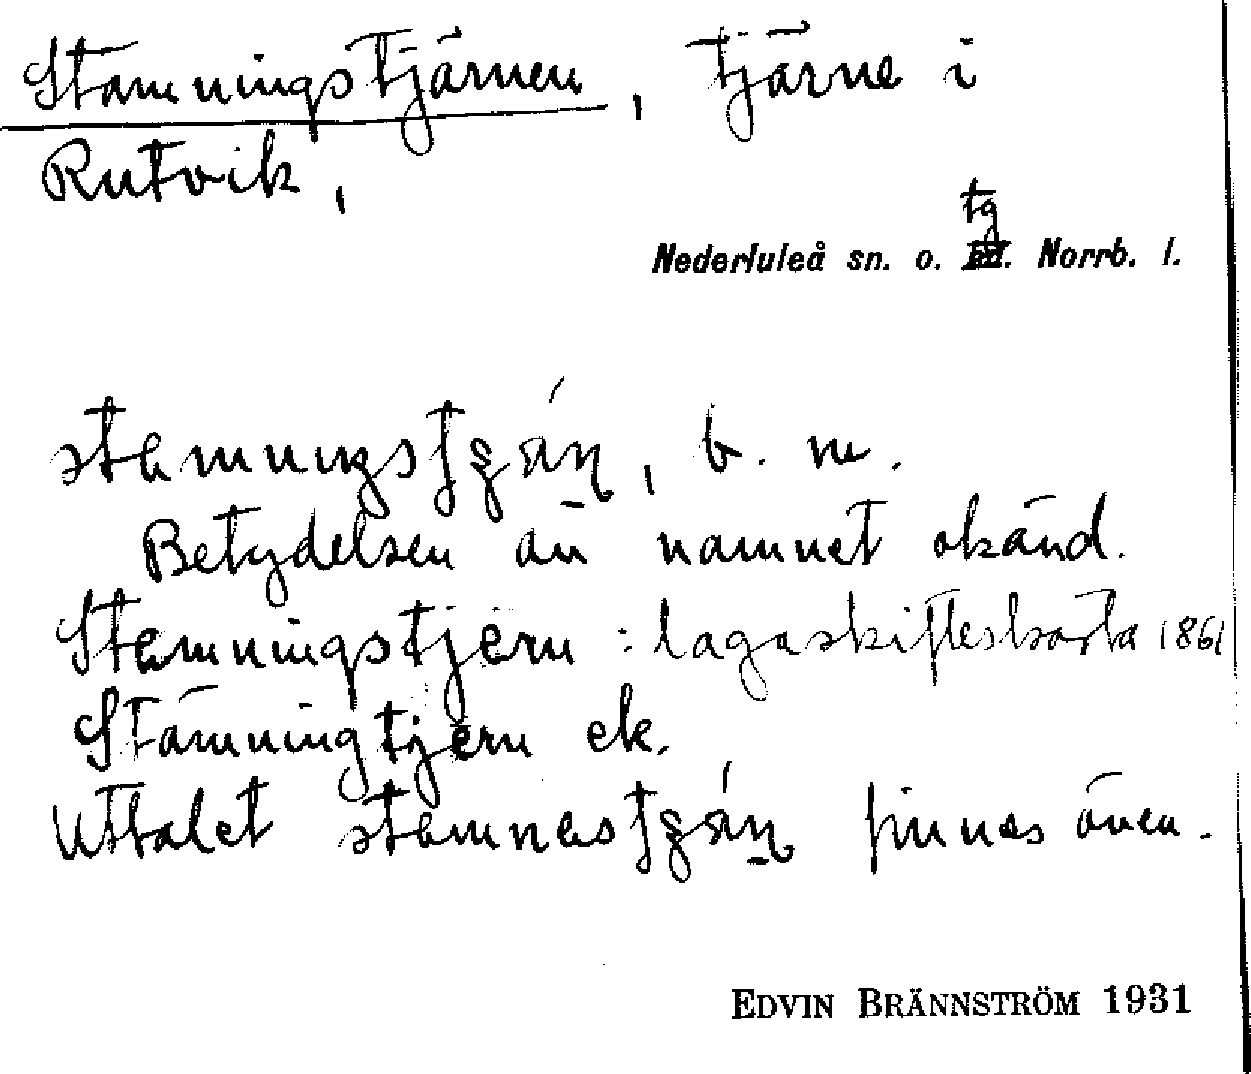 Stämningstjärnen, tjärne i
Rutvik,
tg
Nederluleå sn. o. hd. Norrb. l.
b. m.
Betydelsen av namnet okänd.
Stemningstjern : lagaskifteskarta 1861
Stämningtjern ek.
Uttalet finnes även.
EDVIN BRÄNNSTRÖM 1931